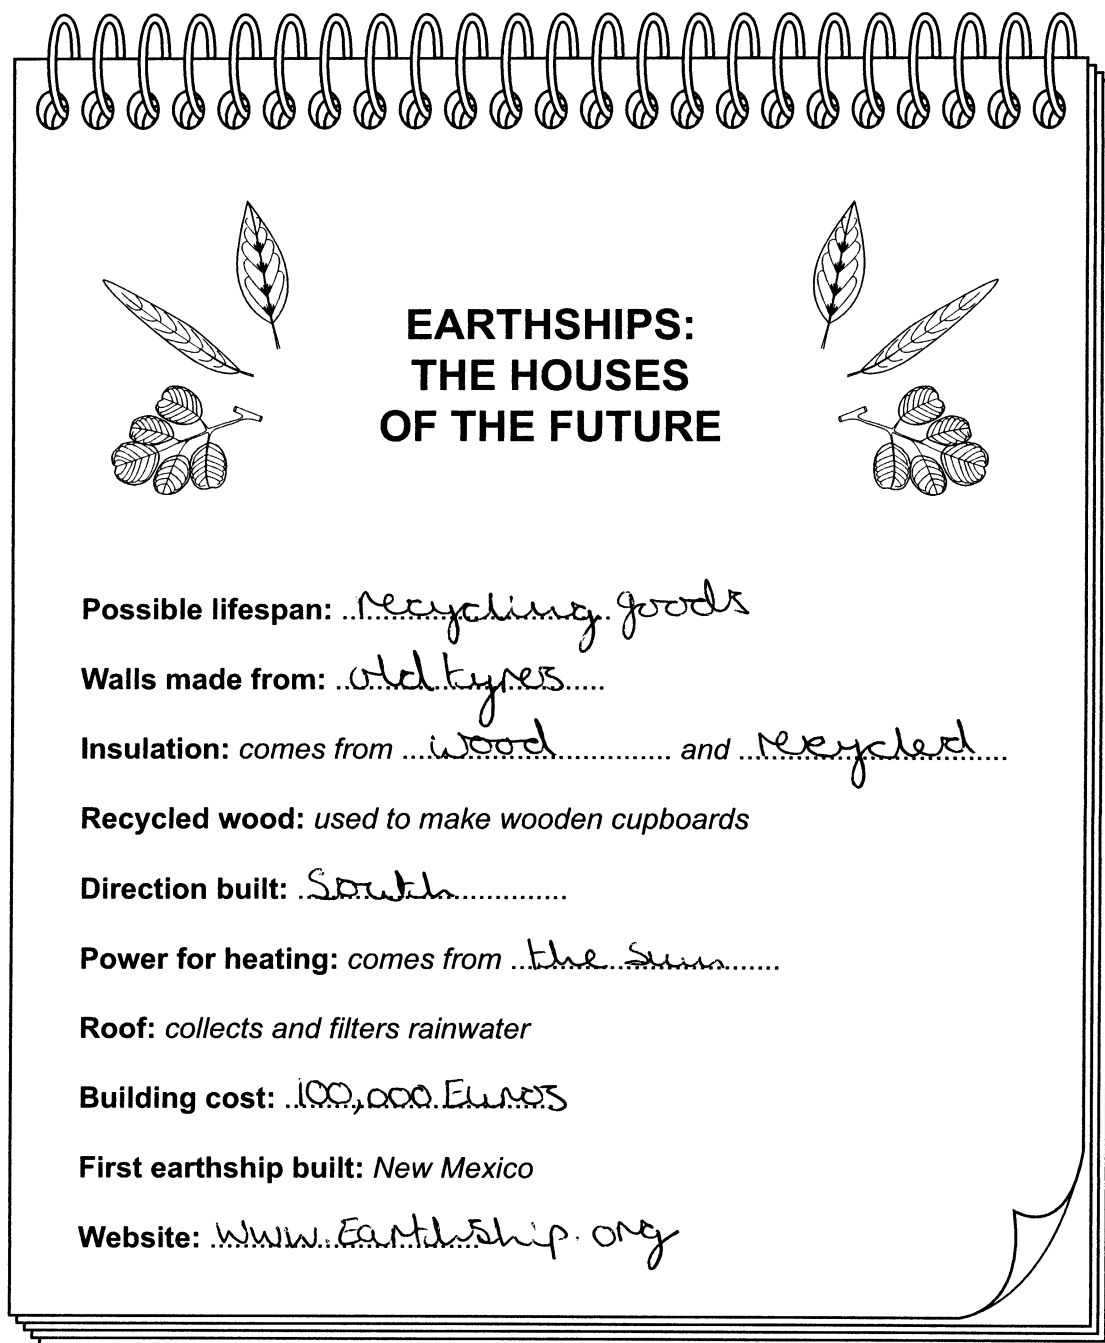 EARTHSHIPS:
THE HOUSES
OF THE FUTURE
Possible lifespan: recycling goods
Walls made from: old tyres
Insulation: comes from wood and recycled
Recycled wood: used to make wooden cupboards
Direction built: South
Power for heating: comes from the sun
Roof: collects and filters rainwater
Building cost: 100,000 Euros
First earthship built: New Mexico
Website: www.Earthship.org